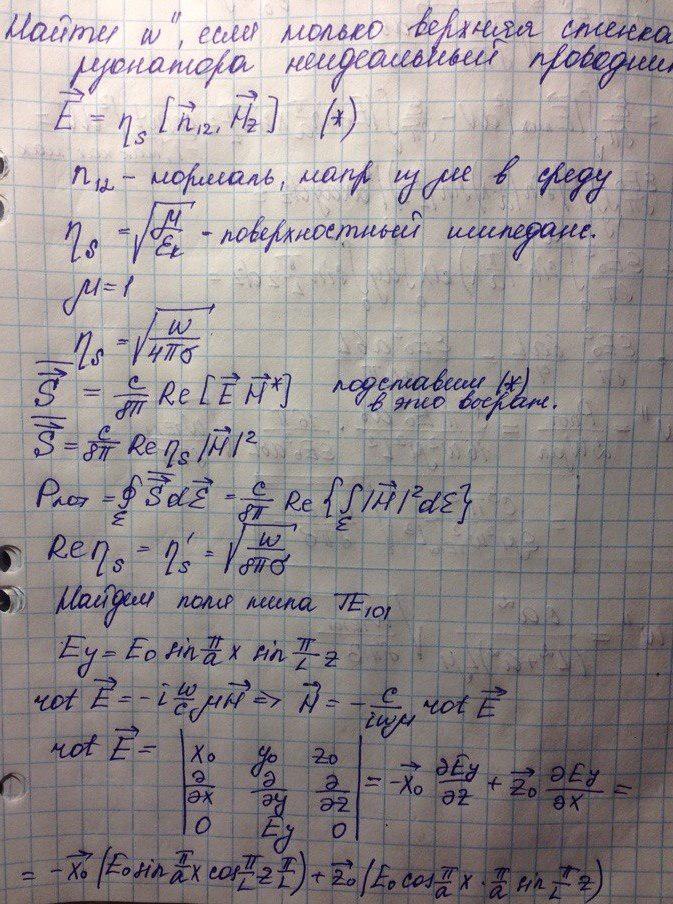 Найти w", если только верхняя стенка
резонатора неидеальный проводник
E⃗ = η_s [n⃗₁₂, H⃗_z] (*)
n₁₂ – нормаль, напр из ме в среду
η_s = √(μ/ε_k) – поверхностный импеданс.
μ = 1
η_s = √(w/4πσ)
S⃗ = c/8π Re [E⃗ H⃗*] подставим (*)
в это выраж.
S⃗ = c/8π Re η_s |H⃗|²
P_пот = ∮_Σ S⃗ dΣ⃗ = c/8π Re {∫_Σ |H⃗|² dΣ}
Re η_s = η'_s = √(w/8πσ)
Найдем поля типа TE₁₀₁
Ey = E₀ sin π/a x sin π/L z
rot E⃗ = -i w/c μH⃗ => H⃗ = - c/iwμ rot E⃗
rot E⃗ = | x₀ y₀ z₀ |
| ∂/∂x ∂/∂y ∂/∂z | = -x⃗₀ ∂Ey/∂z + z⃗₀ ∂Ey/∂x =
| 0 Ey 0 |
= -x⃗₀ (E₀ sin π/a x cos π/L z π/L) + z⃗₀ (E₀ cos π/a x · π/a sin π/L z)